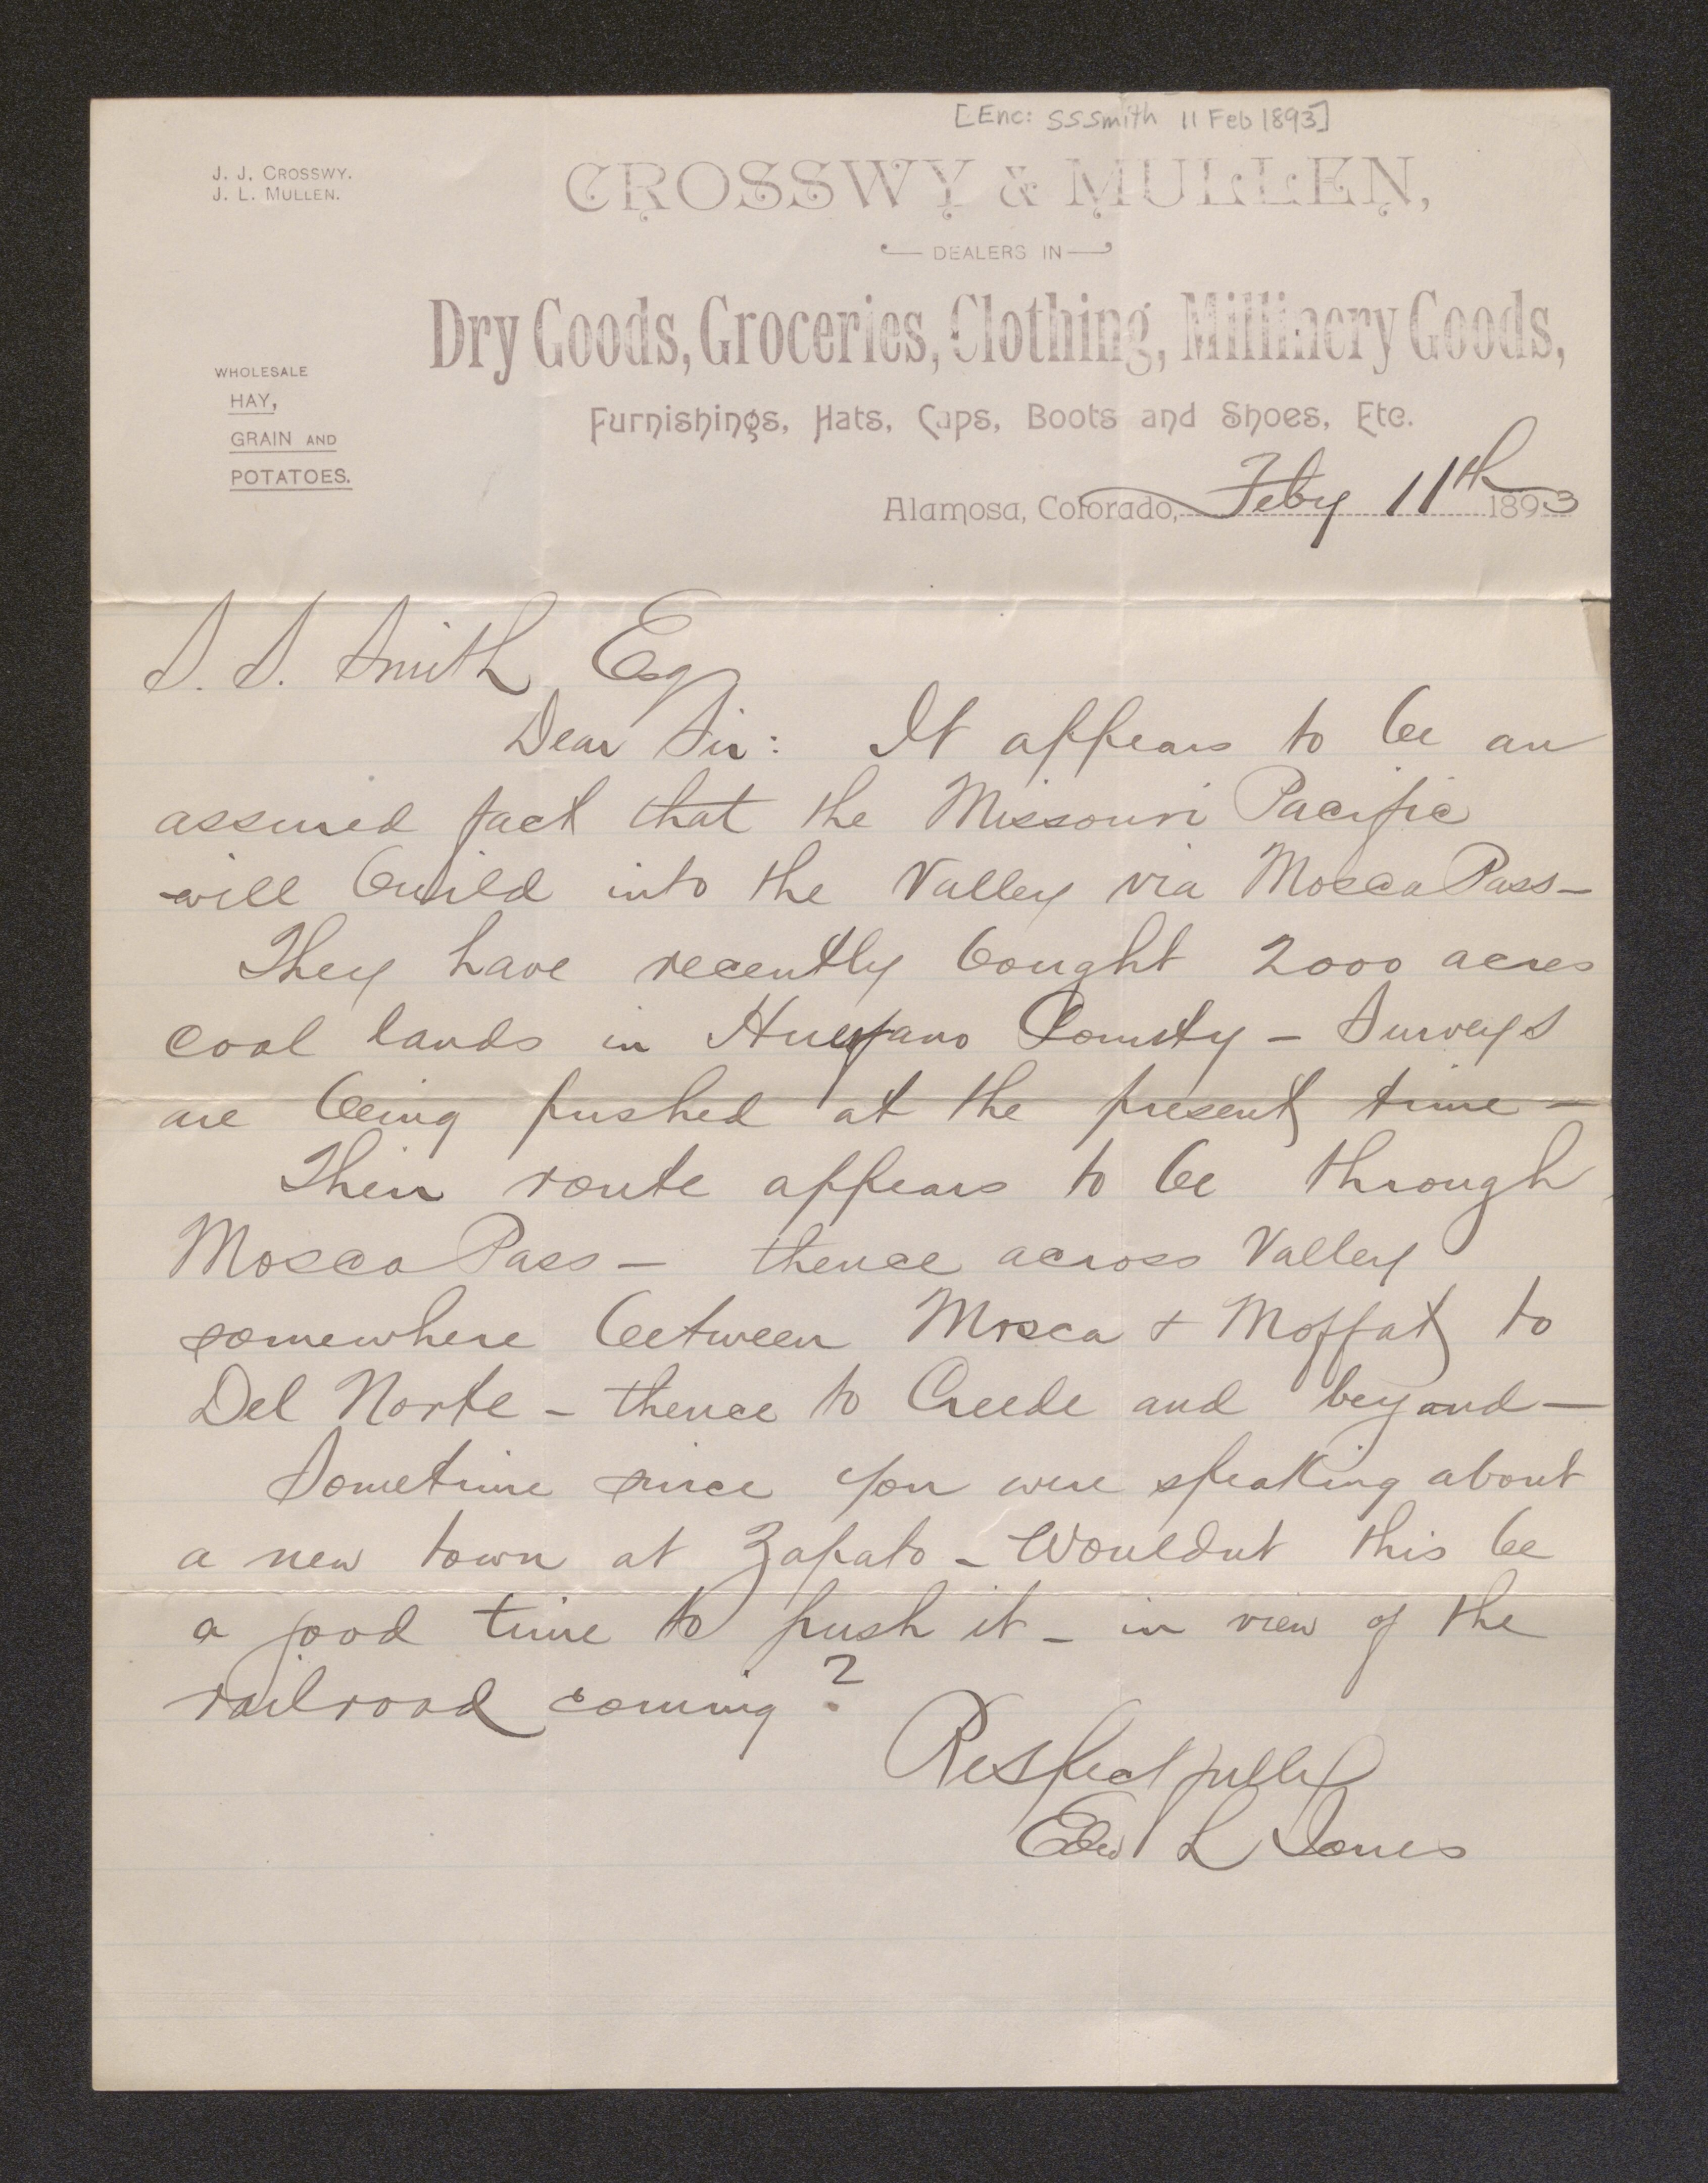 [Enc: SSSmith 11 Feb 1893]
J. J. CROSSWY.
J. L. MULLEN.
CROSSWY & MULLEN,
DEALERS IN
Dry Goods, Groceries, Clothing, Millinery Goods,
WHOLESALE
HAY,
GRAIN AND
POTATOES.
Furnishings, Hats, Caps, Boots and Shoes, Etc.
Alamosa, Colorado, Feby 11th 1893
S. S. Smith Esq
Dear Sir: It appears to be an
assured fact that the Missouri Pacific
will build into the Valley via Mosca Pass—
They have recently bought 2000 acres
coal lands in Huerfano County – Surveys
are being pushed at the present time –
Their route appears to be through
Mosca Pass – thence across Valley
somewhere between Mosca & Moffat to
Del Norte – thence to Creede and beyond —
Sometime since you were speaking about
a new town at Zapato – Wouldnt this be
a good time to push it – in view of the
railroad coming?
Respectfully
Edw L Jones